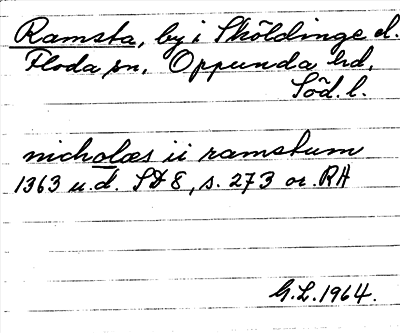 Ramsta, by i Sköldinge d.
Floda sn, Oppunda hd,
Söd. l.
nicholæs ii ramstum
1363 u.d. SD 8, s. 273 or. RA
G.L. 1964.